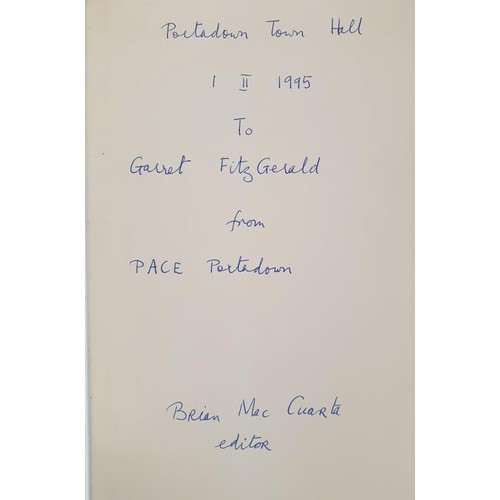 Portadown Town Hall
1 II 1995
To
Garret FitzGerald
from
PACE Portadown
Brian Mac Cuarta
editor